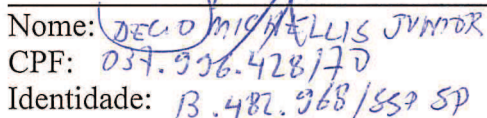 Nome: DECIO MICHELLIS JUNIOR
CPF: 037.996.428/70
Identidade: 13.482.968/SSP SP